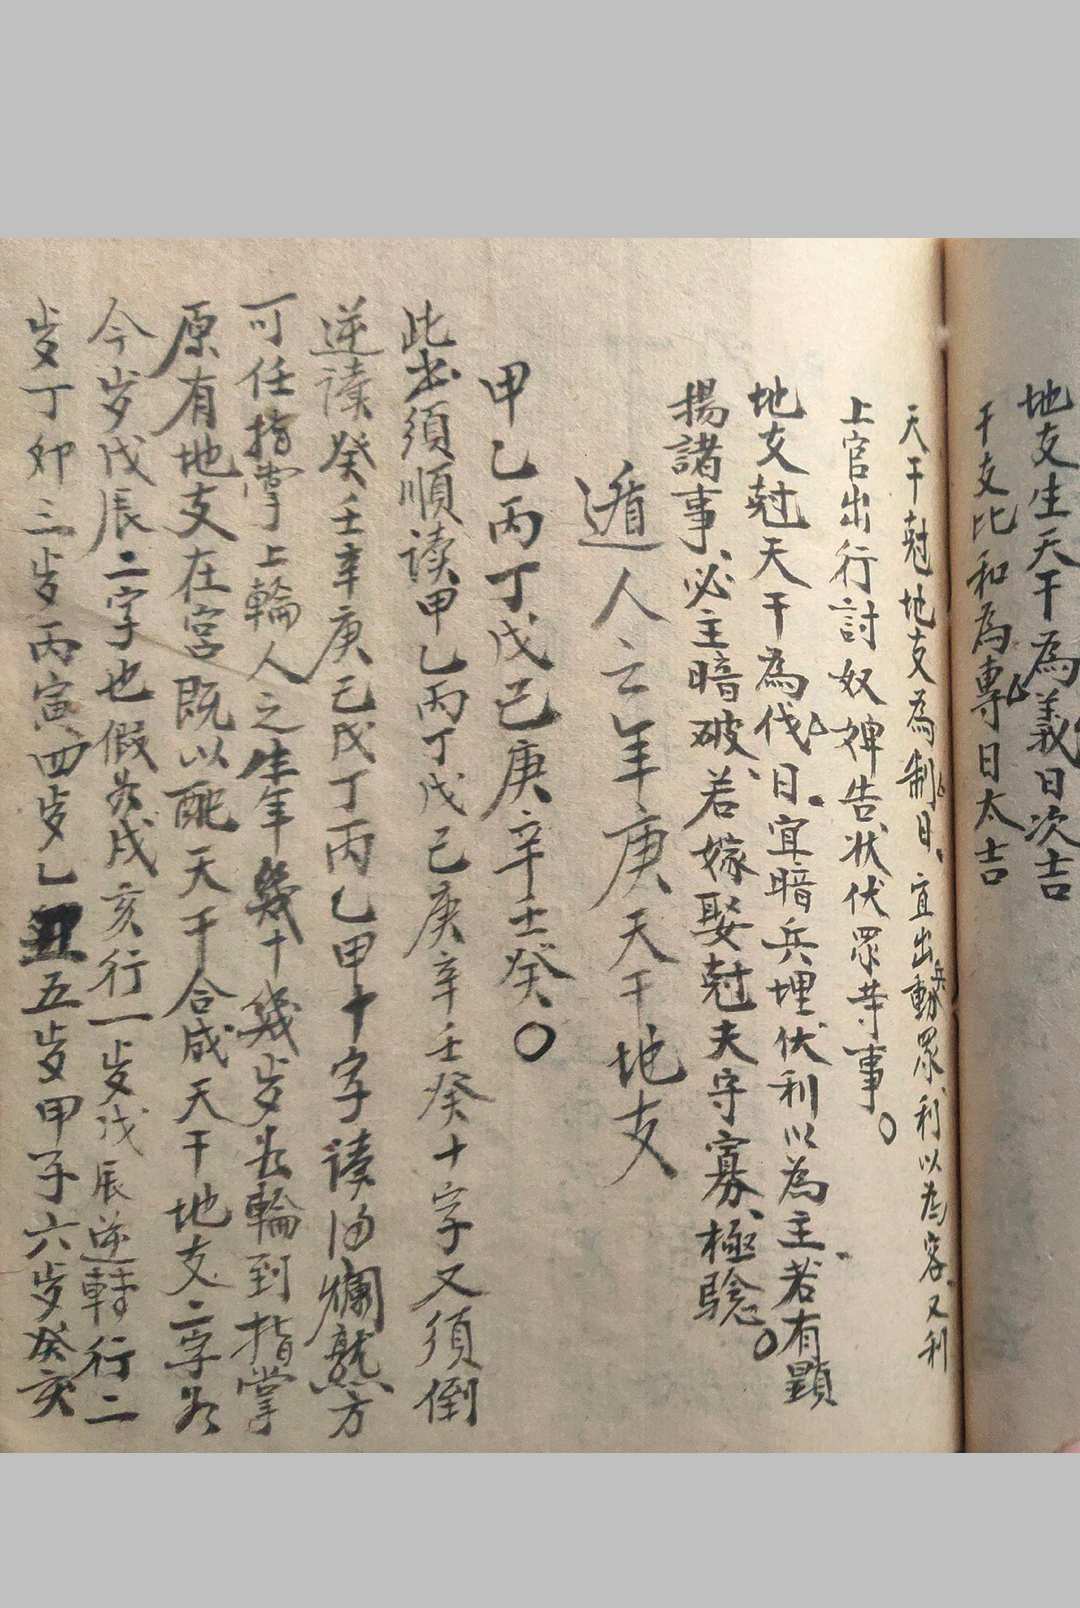 地支生天干為義日次吉
干支比和為專日太吉
天干尅地支為制日宜出兵動眾利以為客又利
上官出行討奴婢告状伏眾等事。
地支尅天干為伐日宜暗兵埋伏利以為主若有顕
揚諸事必主暗破若嫁娶尅夫守寡極騐。
遁人之年庚天干地支
甲乙丙丁戊己庚辛壬癸。
此書須順读甲乙丙丁戊己庚辛壬癸十字又須倒
逆读癸壬辛庚己戊丁丙乙甲十字读得爛熟方
可任指掌上輪人之生年幾十幾岁如輪到指掌
原有地支在宮既以配天干合成天干地支二字如
今岁戊辰二字也假如戌亥行一岁戊辰逆轉行二
岁丁卯三岁丙寅四岁乙丑五岁甲子六岁癸亥